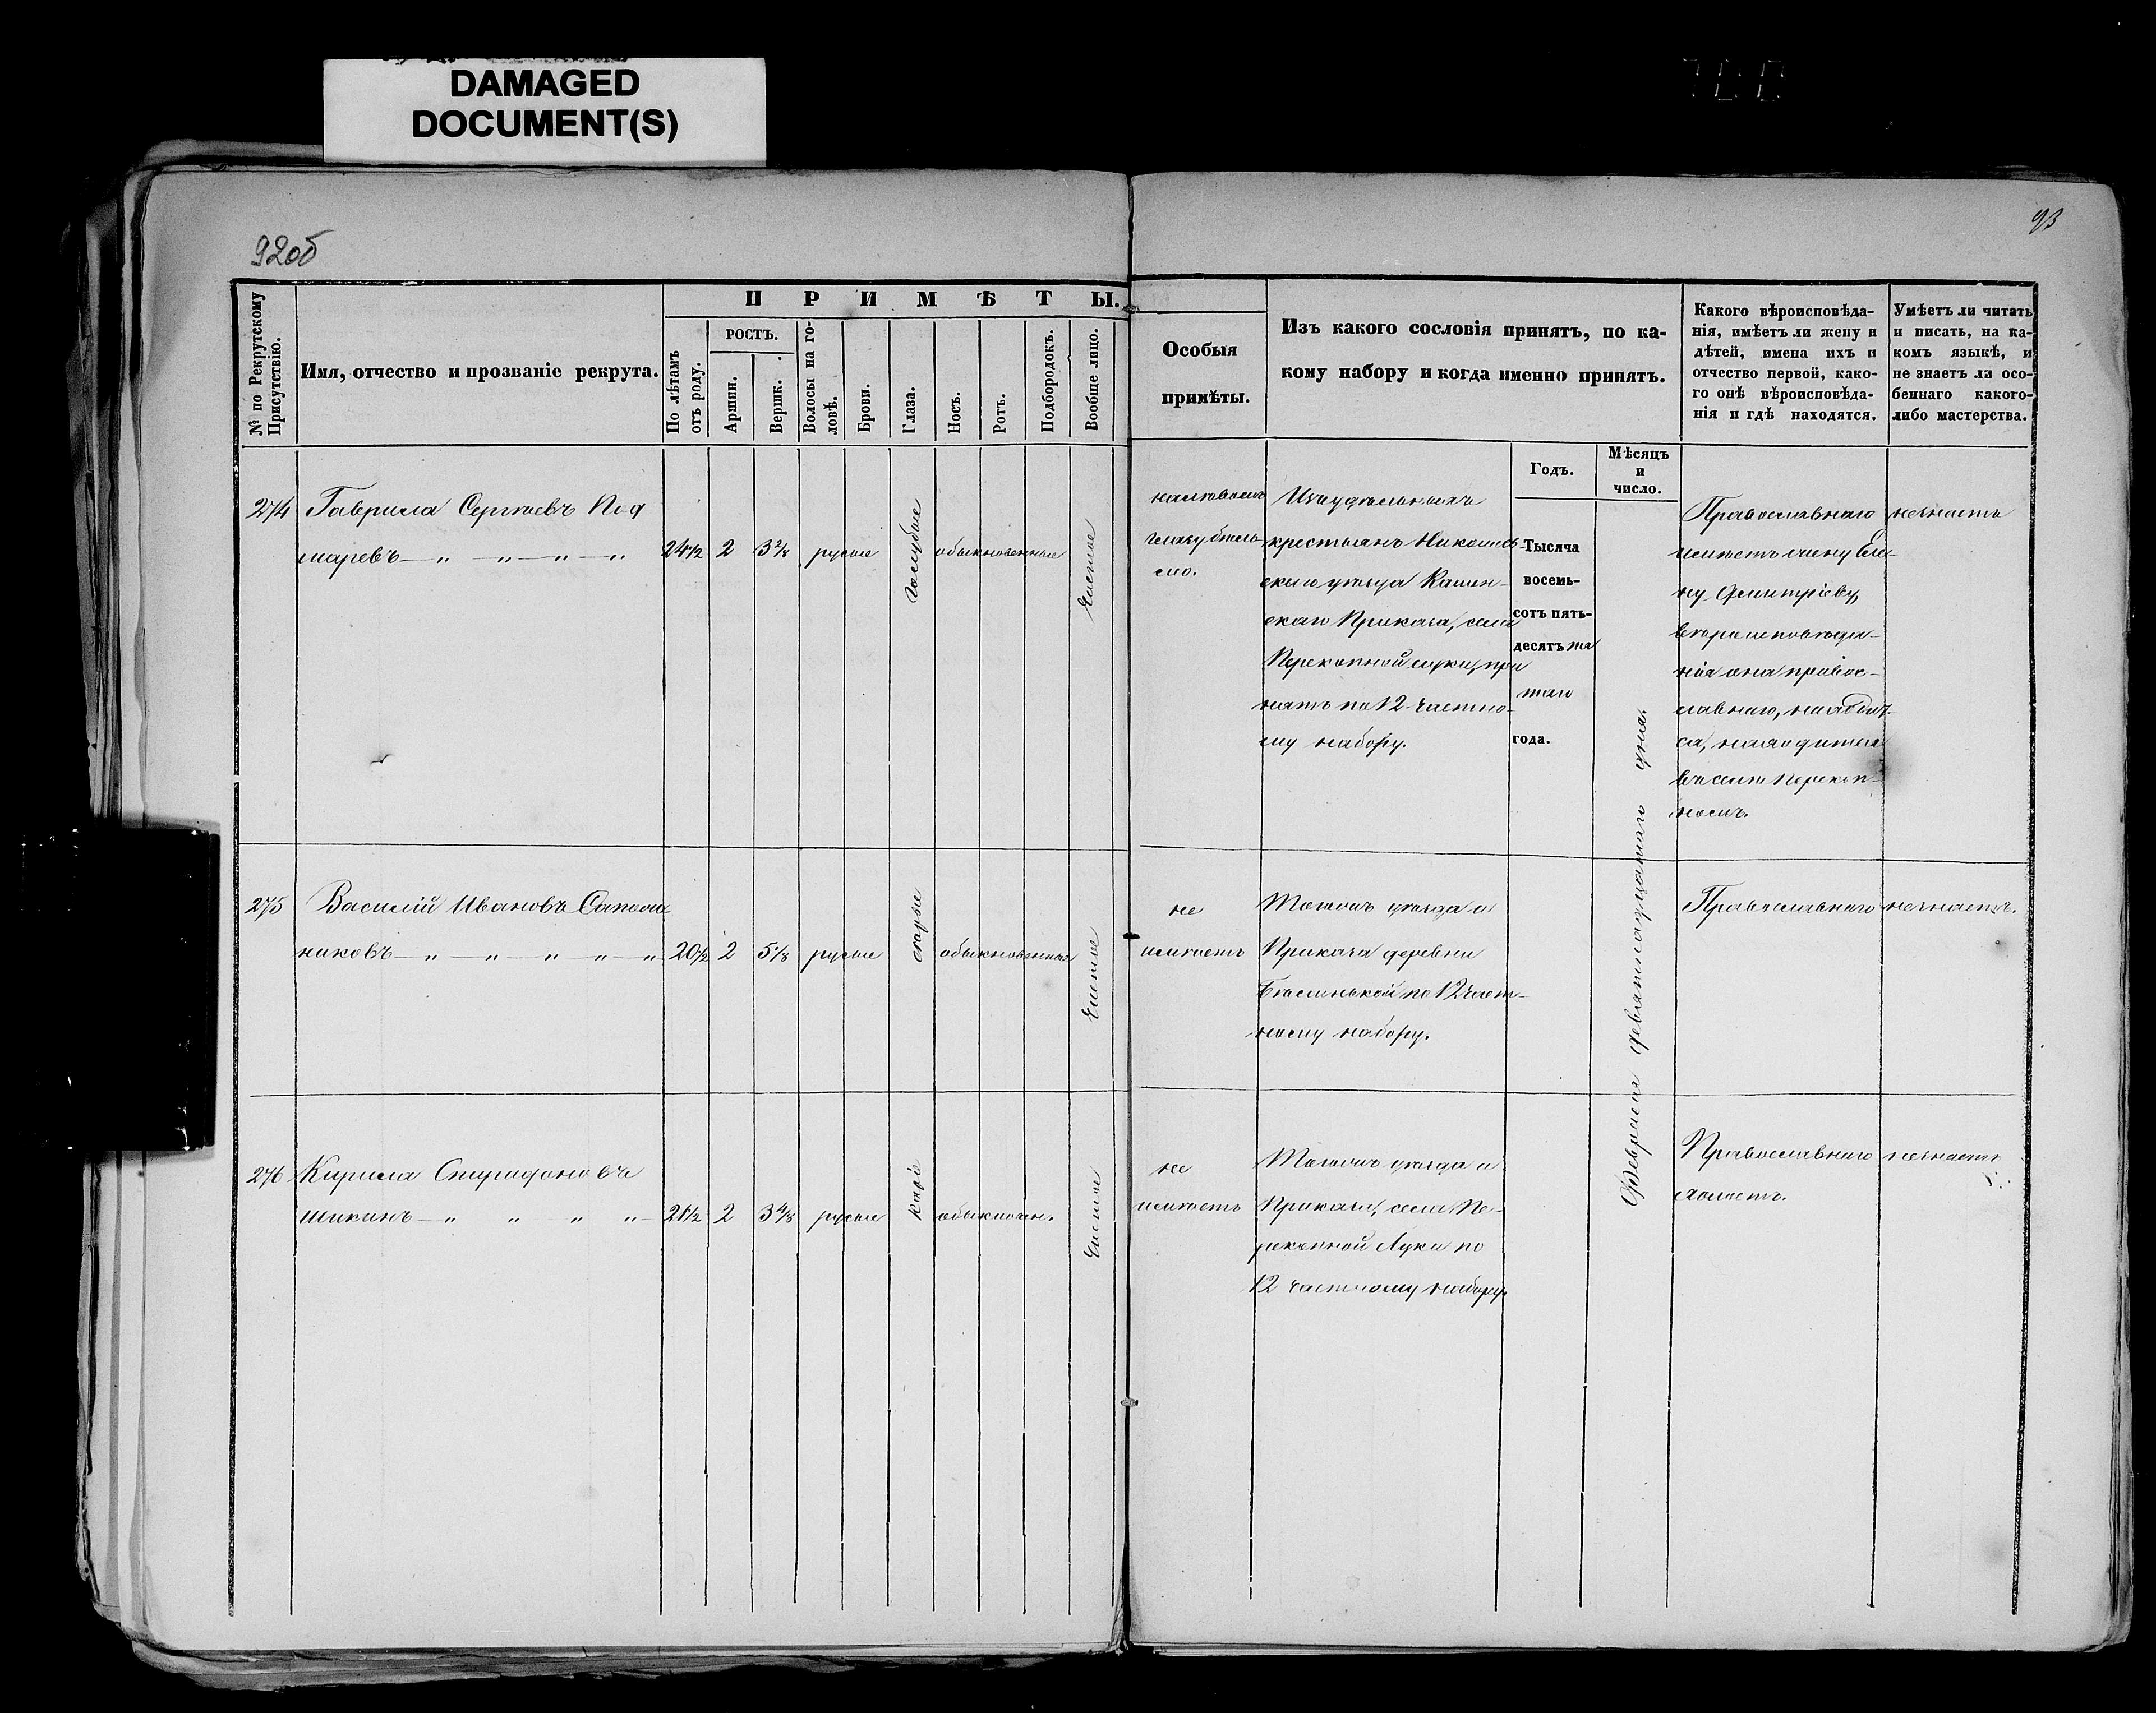 DAMAGED
DOCUMENT(S)
92об
93
№ по Рекрутскому
Присутствію.
Имя, отчество и прозваніе рекрута.
ПРИМѢТЫ.
По лѣтамъ
отъ роду.
РОСТЪ.
Аршин.
Вершк.
Волосы на го-
ловѣ.
Брови.
Глаза.
Носъ.
Ротъ.
Подбородокъ.
Вообще лицо.
Особыя
примѣты.
Изъ какого сословія принятъ, по ка-
кому набору и когда именно принятъ.
Какого вѣроисповѣда-
нія, имѣетъ ли жену и
дѣтей, имена ихъ и
отчество первой, како-
го онѣ вѣроисповѣда-
нія и гдѣ находятся.
Умѣетъ ли читать
и писать, на ка-
комъ языкѣ, и
не знаетъ ли осо-
беннаго какого-
либо мастерства.
Годъ.
Мѣсяцъ
и
число.
274 Гаврила Сергѣевъ Под
маревъ — „ — „ — „ — „ 24½ 2 3 2/8 русые голубые обыкновенные чистое
на лѣвомъ
глазу бѣль
мо.
Изъ удѣльныхъ
крестьянъ Николаев-
скаго уѣзда Камен-
скаго Приказа, села
Перекопной луки, при
нятъ по 12 частно-
му набору.
Тысяча
восемь-
сотъ пять-
десятъ пя
таго
года.
Февраля девятнадцатаго дня.
Православнаго
имѣетъ жену Еле-
ну Дмитріеву,
вѣроисповѣда-
нія она правос-
лавнаго,
находится
въ селѣ Перекоп-
номъ.
незнаетъ
275 Василій Ивановъ Сапож
никовъ — „ — „ — „ — „ — „ 20½ 2 5 1/8 русые сѣрые обыкновенные Чистое
не
имѣетъ
Тогожъ уѣзда и
Приказа деревни
по 12 част-
ному набору.
Православнаго
незнаетъ.
276 Кирила Спиридоновъ
Шикинъ — „ „ „ „ — 21½ 2 3 4/8 русые каріе обыкновен. Чистое
не
имѣетъ
Тогожъ уѣзда и
Приказа, села Пе-
рекопной Луки по
12 частному набору.
Православнаго
холостъ.
незнаетъ